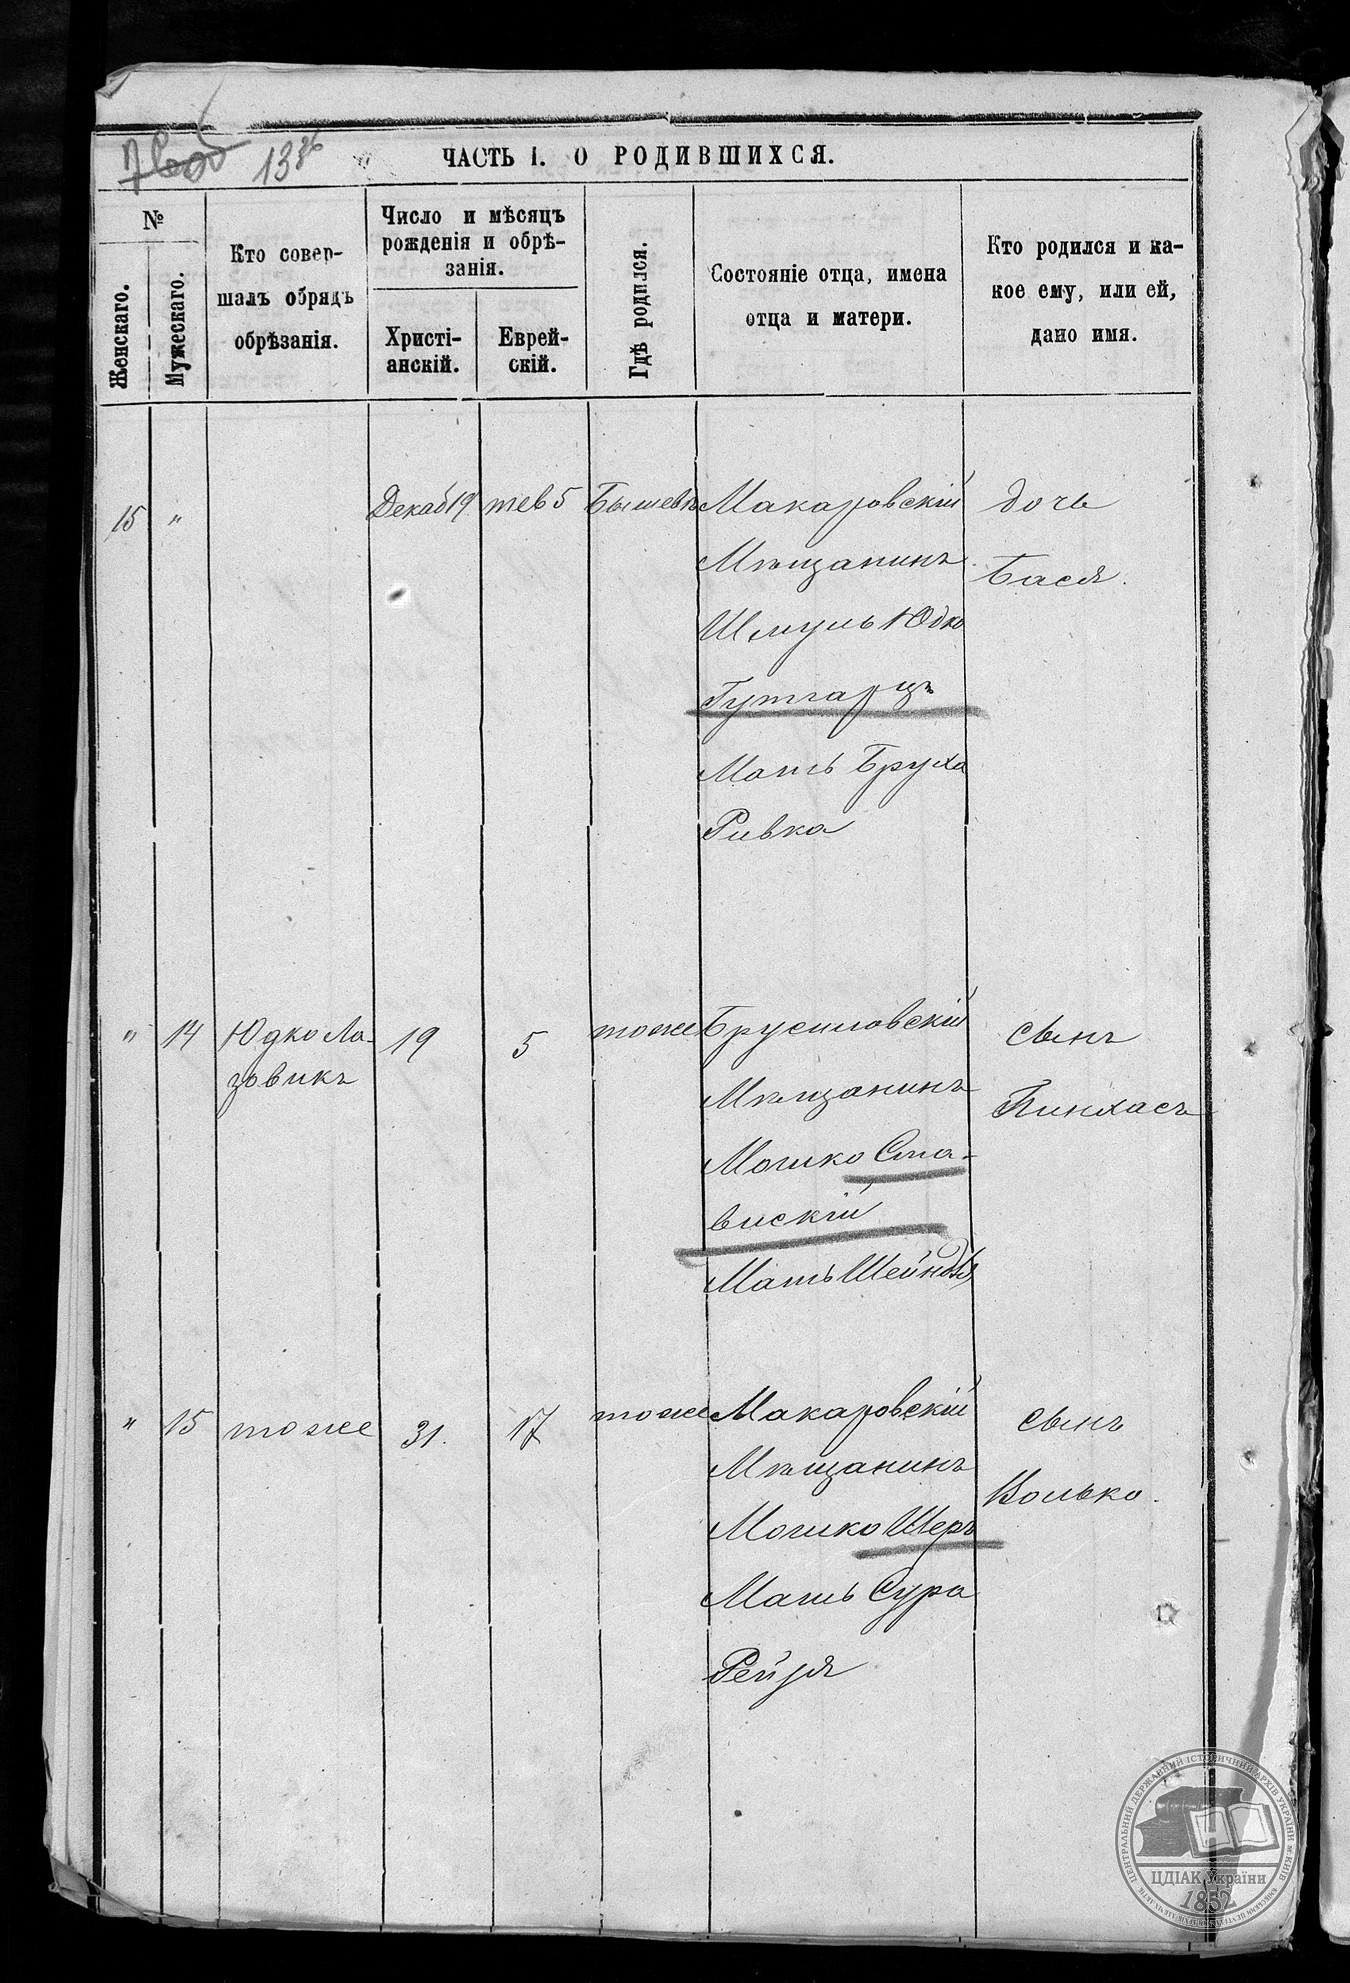 13
ЧАСТЬ I. О РОДИВШИХСЯ.
№
Женскаго.
Мужескаго.
Кто совер-
шалъ обрядъ
обрѣзанія.
Число и мѣсяцъ
рожденія и обрѣ-
занія.
Христі-
анскій.
Еврей-
скій.
Гдѣ родился.
Состояніе отца, имена
отца и матери.
Кто родился и ка-
кое ему, или ей,
дано имя.
15 " Декаб 19 тев 5 Бышевъ Макаровскій дочь
Мѣщанинъ Бася.
Шмуль Юдко
Гутгарцъ
Мать Бруха
Ривка
" 14 Юдко Ла- 19 5 тоже Брусиловскій сынъ
зовикъ Мѣщанинъ Пинхасъ
Мошко Ста-
вискій
Мать Шейндля
" 15 тоже 31. 17 тоже Макаровскій сынъ
Мѣщанинъ Волько.
Мошко Шеръ
Мать Сура
Рейзя
ЦЕНТРАЛЬНИЙ ДЕРЖАВНИЙ ІСТОРИЧНИЙ АРХІВ УКРАЇНИ м. КИЇВ
ЦДІАК України
1852